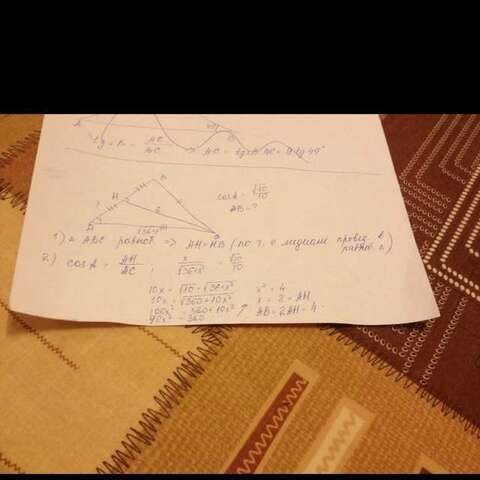 A
49°
C
tg A = BC/AC => BC = tgA·AC = 9tg49°
B
H
x
6
A
√36+x²
C
cosA = √10/10
AB = ?
1) △ ABC равноб => AH=HB (по т. о медиане провед. в равноб △)
2) cosA = AH/AC ; x/√36+x² = √10/10
10x = √10 · √36+x²
10x = √360+10x²
100x² = 360+10x²
90x² = 360
x² = 4
x = 2 = AH
AB = 2AH = 4